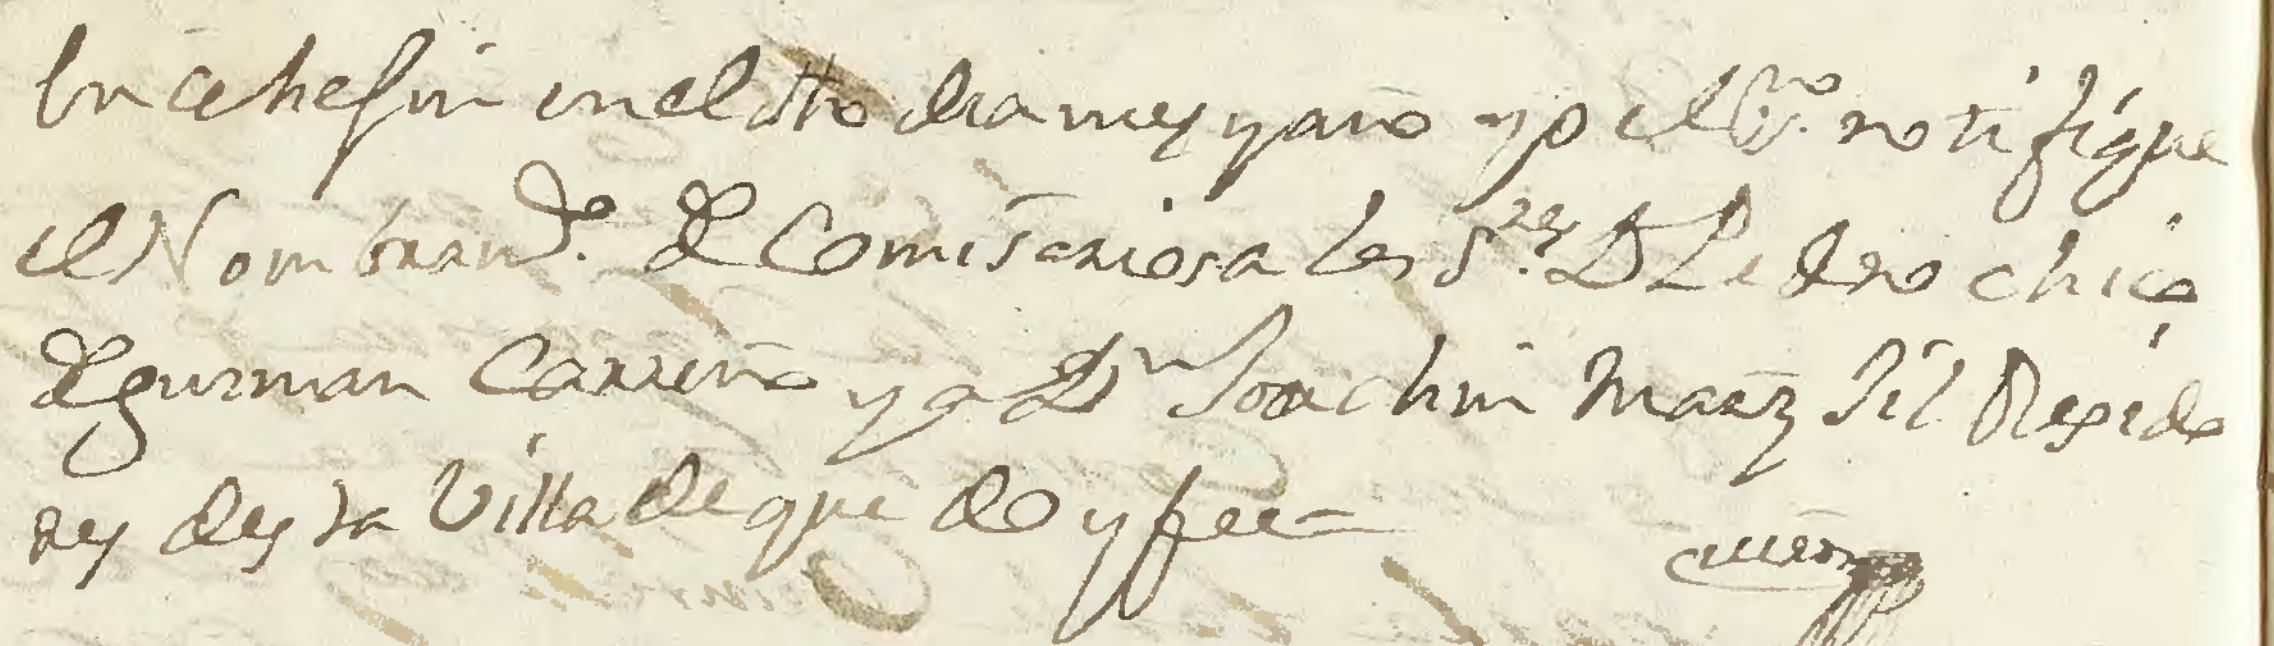 Bucehefin en el dho dia mes y año yo el ssno. notifique
el Nombram.to de Comisarios a los S.res Dn Pedro chico
de gusman Carreño y a Dn Joachin Marz Jil Regido
res desta Villa de que doy fee =